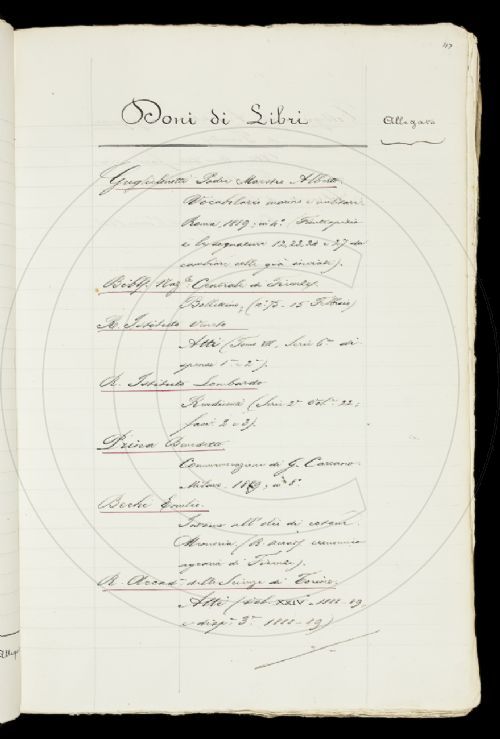 117
Doni di Libri
Allegato
Guglielmotti Padre Maestro Alberto
Vocabolario marino e militare
Roma, 1889; in 4°. (Frontespizio
e le segnature 12, 22, 24 e 27 da
cambiare colle già inviate).
Bibl. Naz.le Centrale di Firenze.
Bollettino; (n° 75 - 15 Febbraio)
R. Istituto Veneto
Atti (Tomo VII, Serie 6a di
spense 1a e 2a).
R. Istituto Lombardo
Rendiconti (Serie 2a Vol. 22;
fasc. 2 e 3).
Prina Benedetto
Commemorazione di G. Carcano.
Milano. 1889; in 8°
Bechi Emilio.
Intorno all'olio di cotone.
Memoria (R. economia
agraria di Firenze).
R. Accad. delle Scienze di Torino.
Atti (Vol. XXIV. 1888-89,
disp. 3a 1888-89)